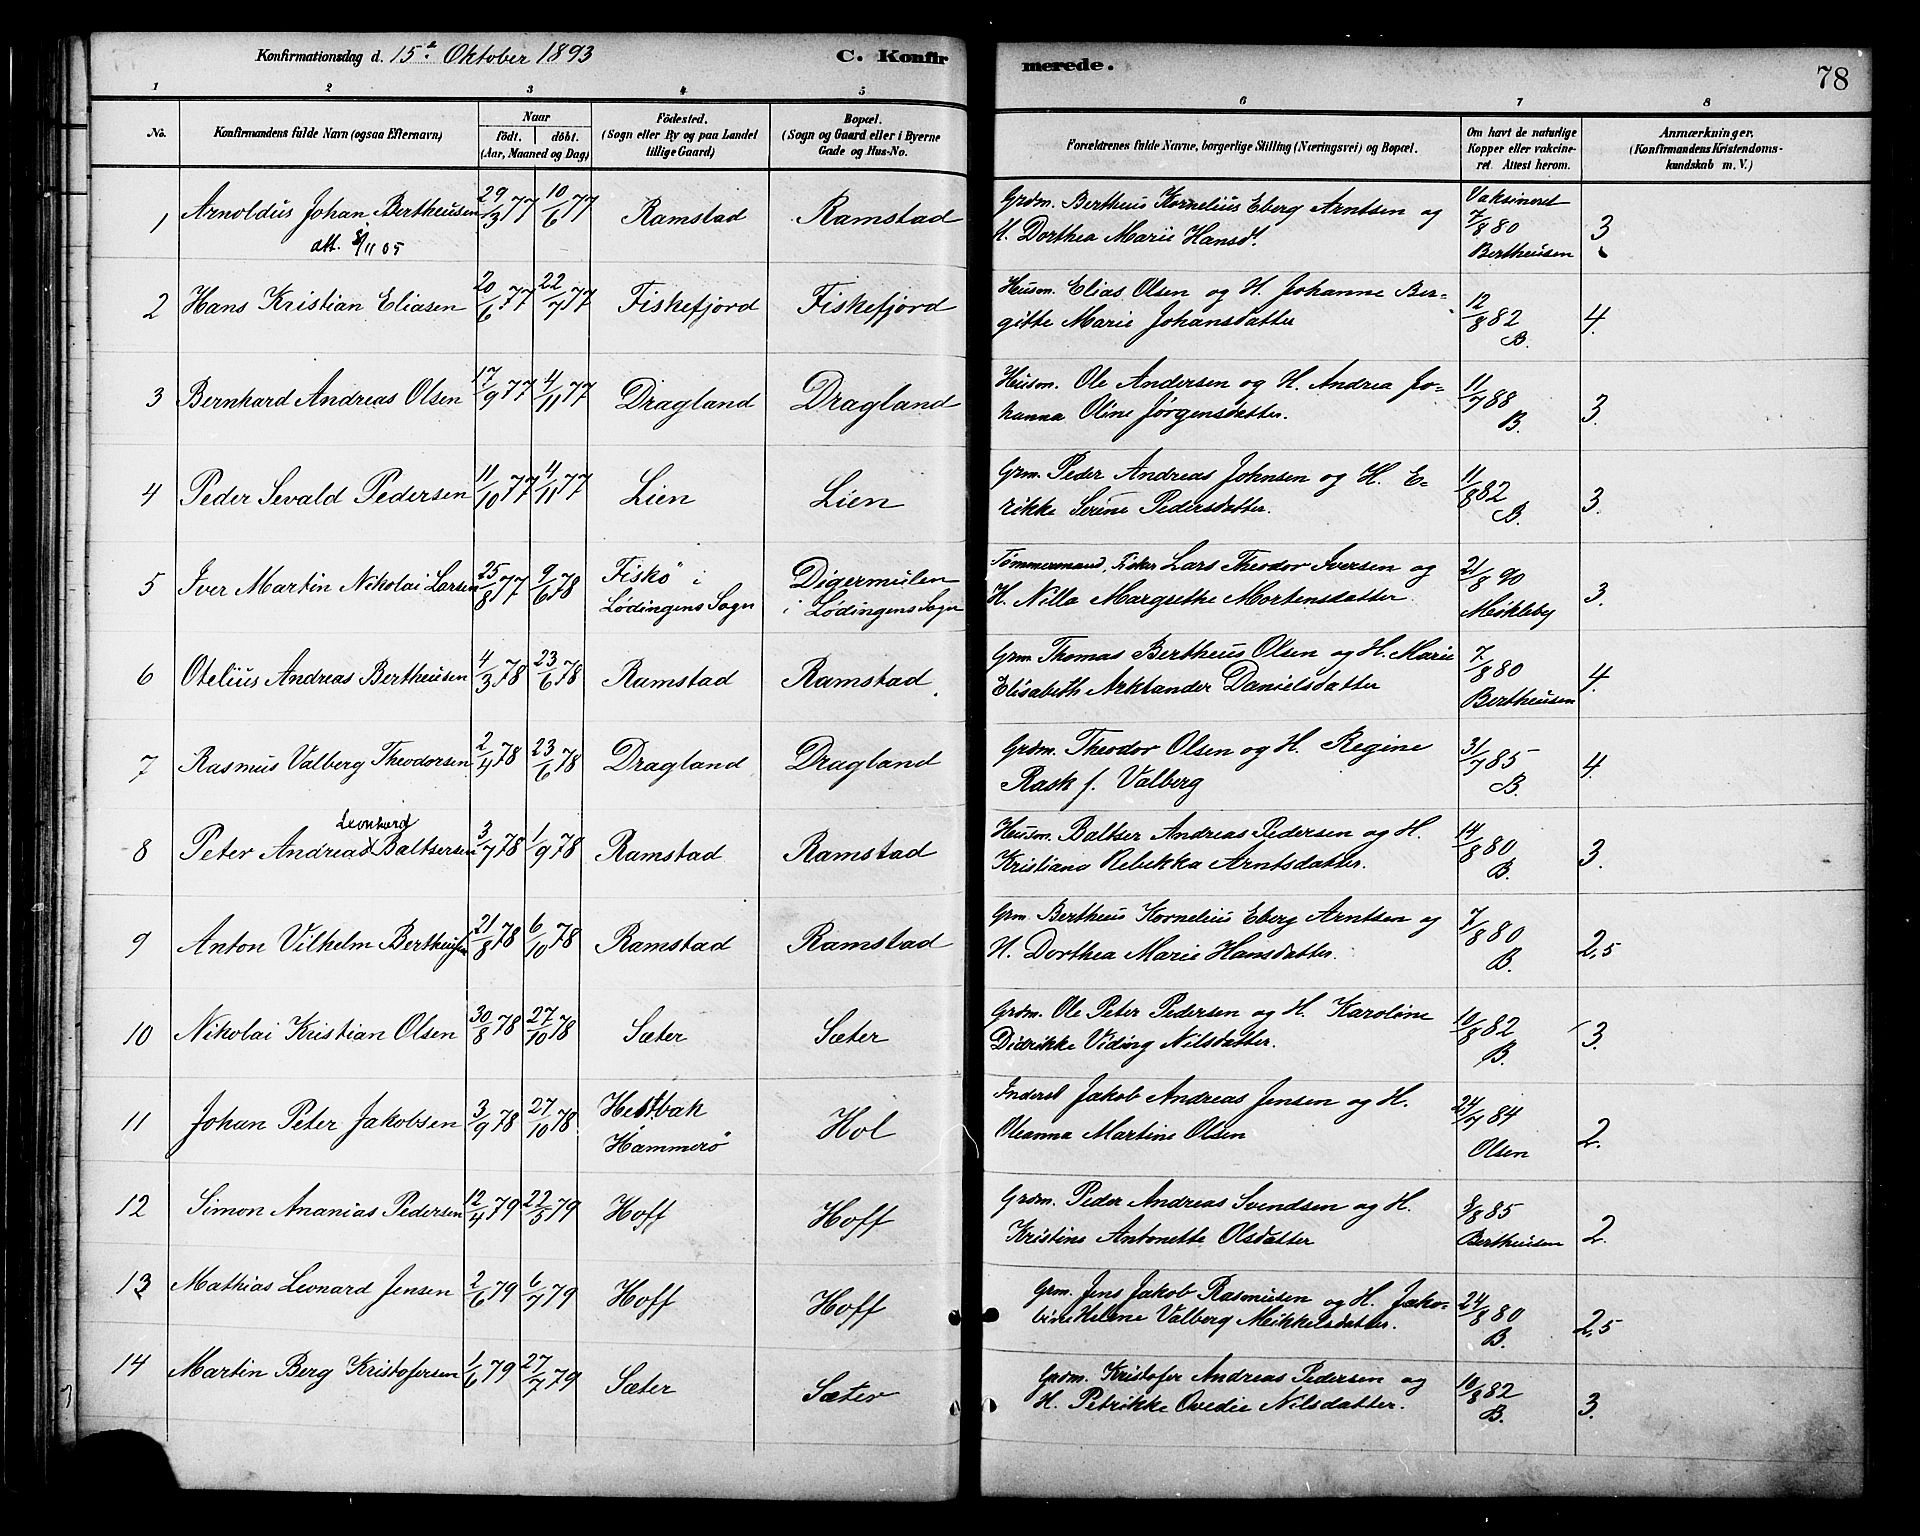 Konfirmationsdag d. 15d Oktober 1893 C. Konfirmerede. 78
1 2 3 4 5 6 7 8
No. Konfirmandens fulde Navn (ogsaa Efternavn) Naar födt. döbt. (Aar, Maaned og Dag) Födested. (Sogn eller By og paa Landet tillige Gaard) Bopæl. (Sogn og Gaard eller i Byerne Gade og Hus-No. Forældrenes fulde Navne, borgerlige Stilling (Næringsvei) og Bopæl. Om havt de naturlige Kopper eller vakcineret. Attest herom. Anmærkninger. (Konfirmandens Kristendomskundskab m. V.)
1 Arnoldus Johan Bertheusen 29/3 77 10/6 77 Ramstad Ramstad Grdm. Bertheus Kornelius Eberg Arntsen og Vaksineret 7/8 80 3
att. 8/11 05 H. Dorthea Marie Hansd. Bertheusen
2 Hans Kristian Eliasen 20/6 77 22/7 77 Fiskefjord Fiskefjord Husm. Elias Olsen og H. Johanne Ber- 12/8 82 4.
gitte Marie Johansdatter B.
3 Bernhard Andreas Olsen 17/9 77 4/11 77 Dragland Dragland Husm. Ole Andersen og H. Andrea Jo- 11/7 88 3.
hanna Oline Jørgensdatter. B.
4 Peder Sevald Pedersen 11/10 77 4/11 77 Lien Lien Grm. Peder Andreas Johnsen og H. E- 11/8 82 3.
rikke Serine Pedersdatter. B.
5 Iver Martin Nikolai Larsen 25/8 77 9/6 78 Fiskö i Digermulen Tømmermand, Fisker Lars Theodor Iversen og 21/8 90 3.
Lødingens Sogn i Lødingens Sogn H. Nilla Margrethe Mortensdatter Møkleby
6 Otelius Andreas Bertheusen 4/3 78 23/6 78 Ramstad Ramstad Grm. Thomas Bertheus Olsen og H. Marie 7/8 80 4.
Elisabeth Arktander Danielsdatter Bertheusen
7 Rasmus Valberg Theodorsen 2/4 78 23/6 78 Dragland Dragland Grdm. Theodor Olsen og H. Regine 31/7 85 4.
Rask f. Valberg B.
Leonhard
8 Peter Andreas Baltsersen 3/7 78 1/9 78 Ramstad Ramstad Husm. Baltser Andreas Pedersen og H. 14/8 80 3.
Kristiana Rebekka Arntsdatter. B.
9 Anton Vilhelm Bertheusen 21/8 78 6/10 78 Ramstad Ramstad Grm. Bertheus Kornelius Eberg Arntsen og 7/8 80 2,5
H. Dorthea Marie Hansdatter. B.
10 Nikolai Kristian Olsen 30/8 78 27/10 78 Sæter Sæter Grdm. Ole Peter Pedersen og H. Karoline 10/8 82 3.
Didrikke Viding Nilsdatter. B.
11 Johan Peter Jakobsen 3/9 78 27/10 78 Hestbak Hol Inderst Jakob Andreas Jensen og H. 24/7 84 2.
Hammerö Oleanna Martine Olsen Olsen
12 Simon Ananias Pedersen 12/4 79 22/5 79 Hoff Hoff Grdm. Peder Andreas Svendsen og H. 8/8 85 2.
Kristine Antonette Olsdatter Bertheusen
13 Mathias Leonard Jensen 2/6 79 6/7 79 Hoff Hoff Grm. Jens Jakob Rasmusen og H. Jako- 24/8 80 2,5
bine Helene Valberg Mikkelsdatter. B.
14 Martin Berg Kristofersen 1/6 79 27/7 79 Sæter Sæter Grdm. Kristofer Andreas Pedersen og 10/8 82 3.
H. Petrikke Ovedie Nilsdatter. B.